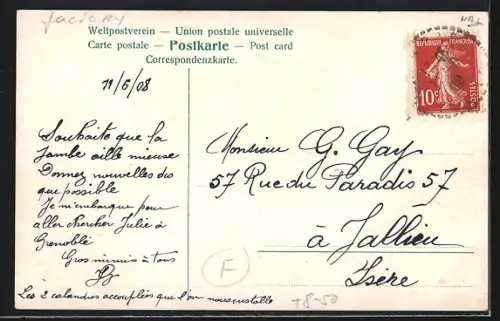 factory
Weltpostverein — Union postale universelle
Carte postale — Postkarte — Post card
Correspondenzkarte.
11/6/08
REPUBLIQUE FRANÇAISE
10c
POSTES
Souhaite que la
jambe aille mieuse
Donnez nouvelles dès
que possible
Je m'embarque pour
aller chercher Julie à
Grenoble
Gros mimis à tous
Les 2 calandres accouplées que l'on nous installe
Monsieur G. Gay
57 Rue du Paradis 57
à Jallieu
Isère
F
T8-50